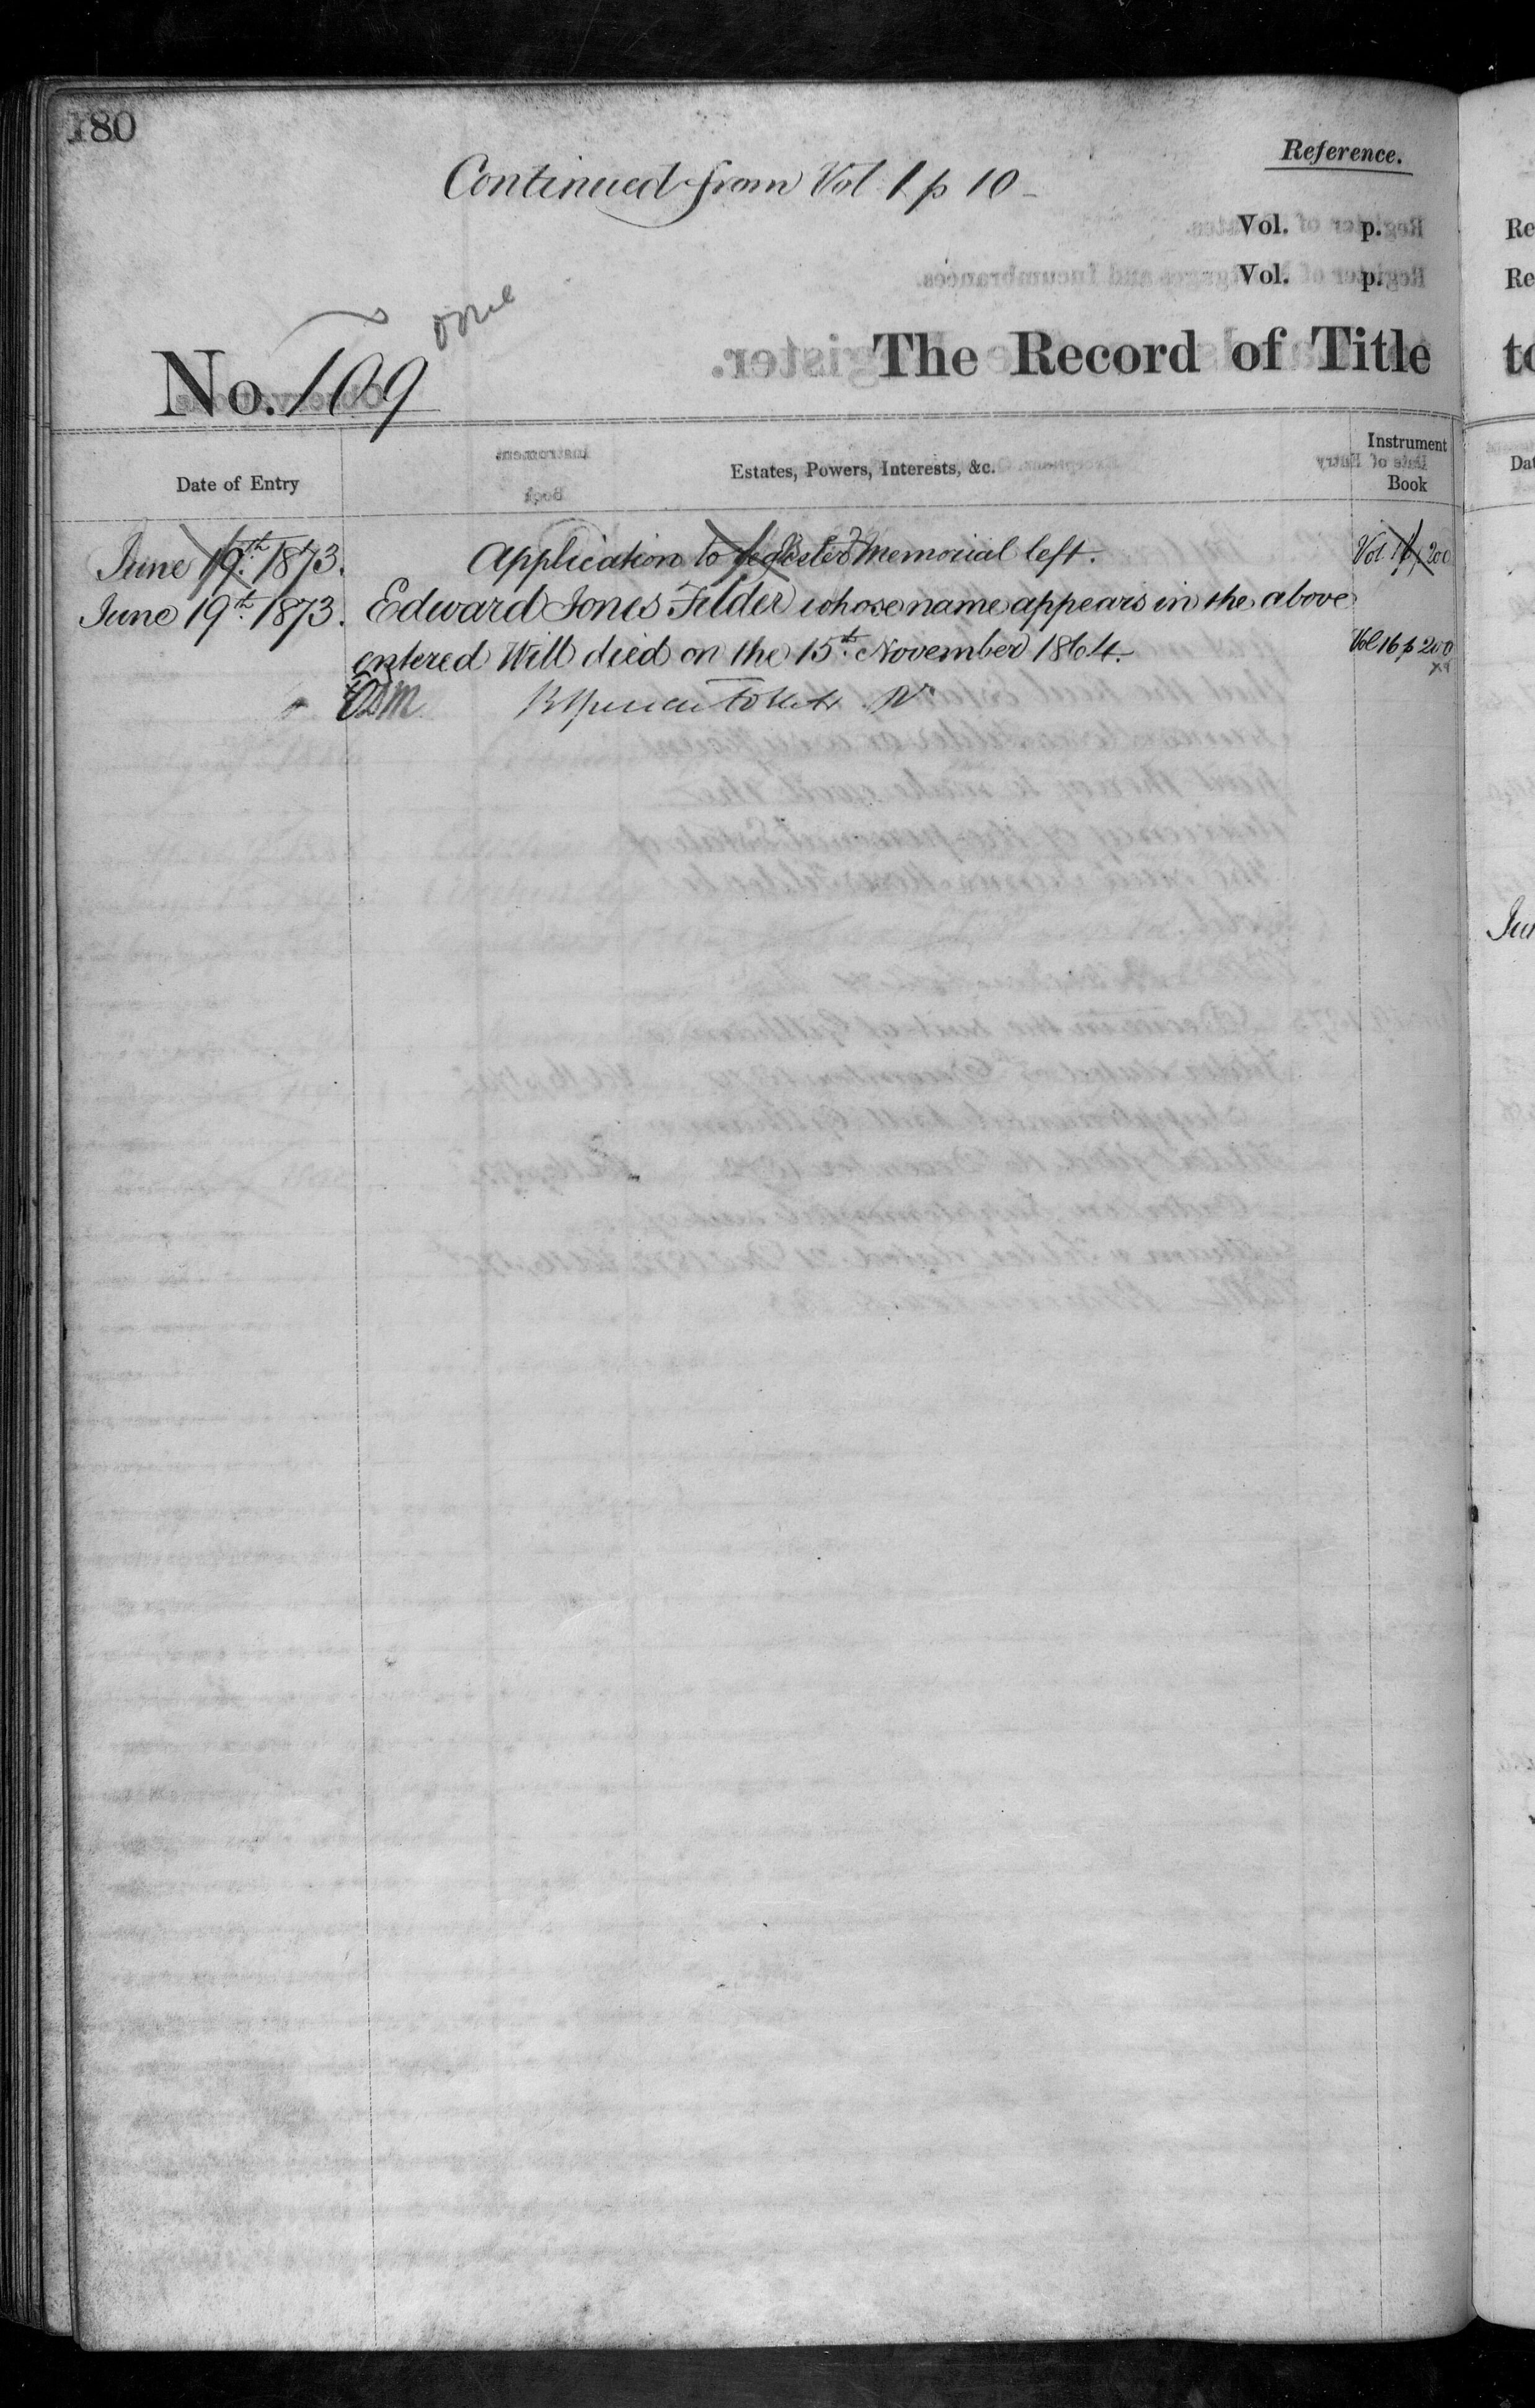 180
Continued from Vol 1 p 10
Reference.
Vol. p.
Vol. p.
No. 109
The Record of Title
Date of Entry
Estates, Powers, Interests, &c.
Instrument Book
June 19th 1873. Application to register Memorial left. Vol 16 p 200
June 19th 1873. Edward Jones Felder whose name appears in the above
entered Will died on the 15th November 1864. Vol 16 p 200